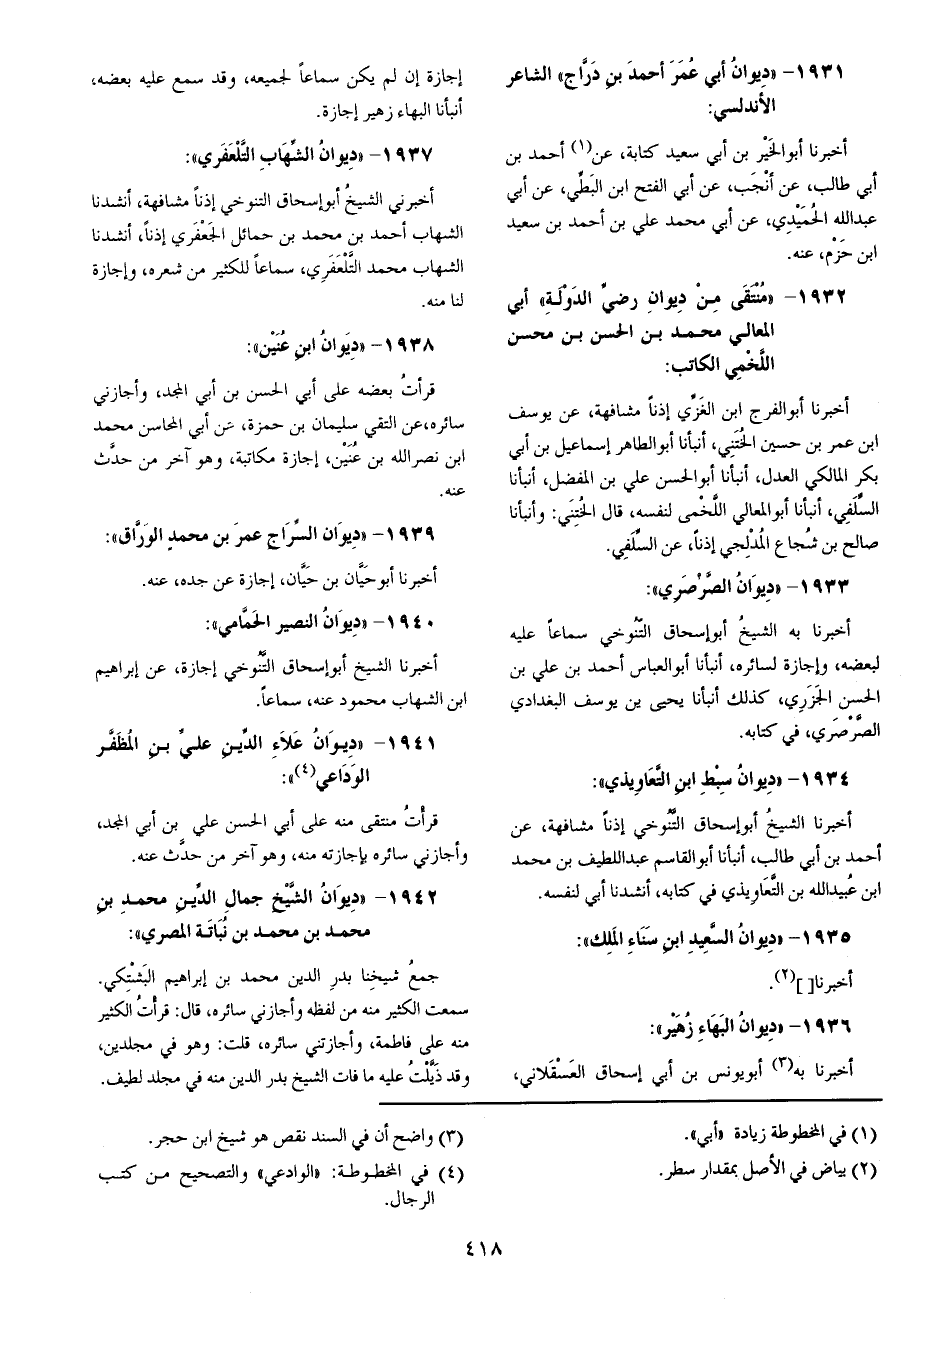 ١٩٣١- «ديوانُ أبي عُمَرَ أحمدَ بنِ دَرَّاج» الشاعر
الأندلسي:
أخبرنا أبوالخَيْر بن أبي سعيد كتابة، عن(١) أحمد بن
أبي طالب، عن أنْجَب، عن أبي الفتح ابن البَطِّي، عن أبي
عبدالله الحُمَيْدي، عن أبي محمد علي بن أحمد بن سعيد
ابن حَزْم، عنه.
١٩٣٢- «مُنْتَقَى مِنْ دِيوانِ رضيِّ الدَوْلَةِ» أبي
المعالي محمد بن الحسن بن محسن
اللَّخْمِي الكاتب:
أخبرنا أبوالفرج ابن الغَزِّي إذناً مشافهة، عن يوسف
ابن عمر بن حسين الخُتَنِي، أنبأنا أبوالطاهر إسماعيل بن أبي
بكر المالكي العدل، أنبأنا أبوالحسن علي بن المفضل، أنبأنا
السِّلَفِي، أنبأنا أبوالمعالي اللَّخْمى لنفسه، قال الخُتنَي: وأنبأنا
صالح بن شُجاع المُدْلجي إذناً، عن السِّلَفِي.
١٩٣٣- «دِيوانُ الصَّرْصَرِي»:
أخبرنا به الشيخُ أبوإسحاق التَّنُوخي سماعاً عليه
لبعضه، وإجازة لسائره، أنبأنا أبوالعباس أحمد بن علي بن
الحسن الجَزَرِي، كذلك أنبأنا يحيى ين يوسف البغدادي
الصَّرْصَرِي، في كتابه.
١٩٣٤- «دِيوانُ سِبْطِ ابنِ التَّعَاوِيذي»:
أخبرنا الشيخُ أبوإسحاق التَّنُوخي إذناً مشافهة، عن
أحمد بن أبي طالب، أنبأنا أبوالقاسم عبداللطيف بن محمد
ابن عُبيدالله بن التَّعَاويذي في كتابه، أنشدنا أبي لنفسه.
١٩٣٥- «ديوانُ السَّعِيدِ ابنِ سَنَاءِ المَلِك»:
أخبرنا[ ](٢).
١٩٣٦- «دِيوانُ البَهَاءِ زُهَيْر»:
أخبرنا به(٣) أبويونس بن أبي إسحاق العَسْقَلاني،
إجازة إن لم يكن سماعاً لجميعه، وقد سمع عليه بعضه،
أنبأنا البهاء زهير إجازة.
١٩٣٧- «دِيوانُ الشِّهَابِ التَّلْعَفَري»:
أخبرني الشيخُ أبوإسحاق التنوخي إذناً مشافهة، أنشدنا
الشهاب أحمد بن محمد بن حمائل الجَعْفَري إذناً، أنشدنا
الشهاب محمد التَّلْعَفَرِي، سماعاً للكثير من شعره، وإجازة
لنا منه.
١٩٣٨- «دِيَوانُ ابنِ عُنَيْن»:
قرأتُ بعضه على أبي الحسن بن أبي المجد، وأجازني
سائره،عن التقي سليمان بن حمزة، عَن أبي المحاسن محمد
ابن نصرالله بن عُنَيْن، إجازة مكاتبة، وهو آخر من حدَّث
عنه.
١٩٣٩- «ديوَان السِّرَاجِ عمرَ بن محمدٍ الوَرَّاق»:
أخبرنا أبوحَيَّان بن حَيَّان، إجازة عن جده، عنه.
١٩٤٠- «ديوَانُ النصير الحَمَّامي»:
أخبرنا الشيخ أبوإسحاق التَّنُوخي إجازة، عن إبراهيم
ابن الشهاب محمود عنه، سماعاً.
١٩٤١- «ديوَانُ عَلاَءِ الدِّينِ عليِّ بنِ المُظَفَّر
الوَدَاعي(٤)»:
قرأتُ منتقى منه على أبي الحسن علي بن أبي المجد،
وأجازني سائره بإجازته منه، وهو آخر من حدَّث عنه.
١٩٤٢- «ديوَانُ الشَّيْخِ جمالِ الدِّينِ محمدِ بنِ
محمد بن محمد بن نُبَاتَة المصري»:
جمعُ شيخنا بدرِ الدين محمد بن إبراهيم البَشْتكي.
سمعت الكثير منه من لفظه وأجازني سائره، قال: قرأتُ الكثير
منه على فاطمة، وأجازتني سائره، قلت: وهو في مجلدين،
وقد ذَيَّلْتُ عليه ما فات الشيخ بدر الدين منه في مجلد لطيف.
(١) في المخطوطة زيادة «أبي».
(٢) بياض في الأصل بمقدار سطر.
(٣) واضح أن في السند نقص هو شيخ ابن حجر.
(٤) في المخطوطة: «الوادعي» والتصحيح من كتب
الرجال.
٤١٨